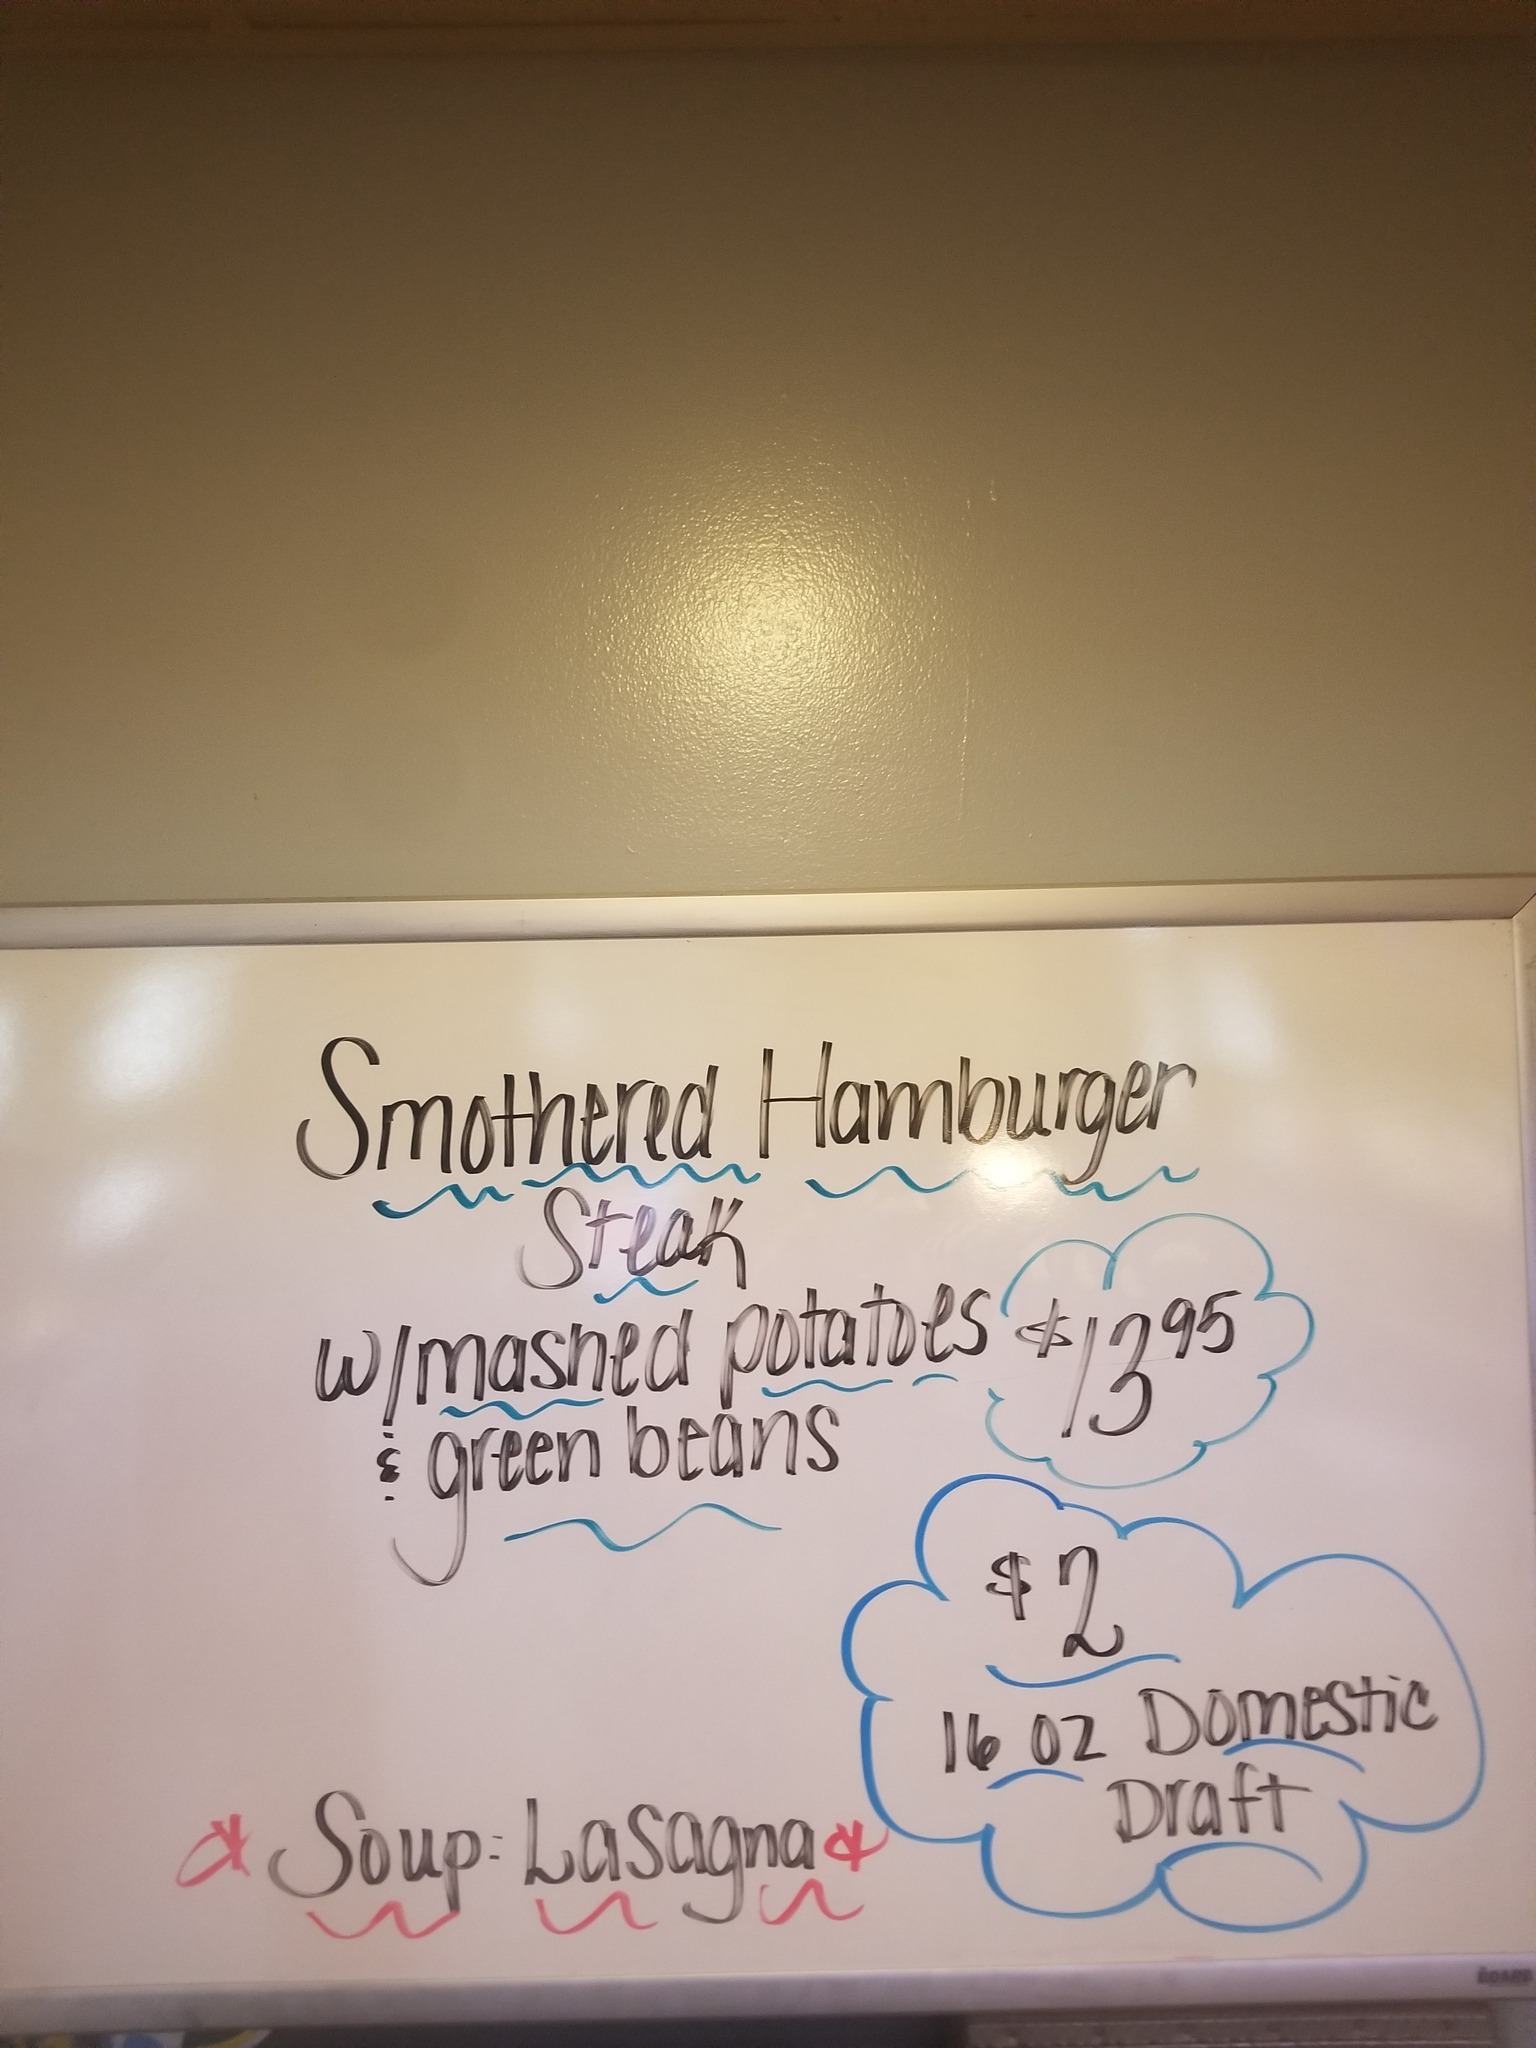 Smothered Hamburger
Steak
w/mashed potatoes $13.95
& green beans
$2
16 oz Domestic
Draft
Soup: Lasagna
BOARD